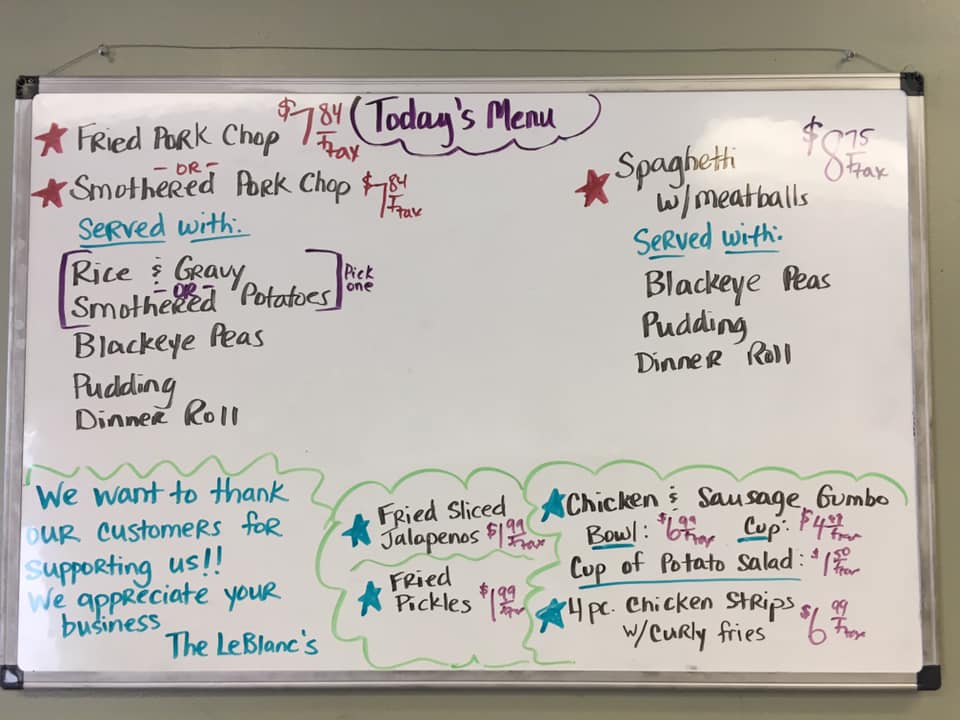 Today's Menu
★ Fried Pork Chop $7.84 + tax
- OR -
★ Smothered Pork Chop $7.84 + tax
Served with:
Rice & Gravy
- OR -
Smothered Potatoes
Pick
one
Blackeye Peas
Pudding
Dinner Roll
★ Spaghetti $8.75 + tax
w/meatballs
Served with:
Blackeye Peas
Pudding
Dinner Roll
We want to thank
our customers for
supporting us!!
We appreciate your
business
The LeBlanc's
★ Fried Sliced
Jalapenos $1.99 + tax
★ Fried
Pickles $1.99 + tax
★ Chicken & Sausage Gumbo
Bowl: $6.99 + tax Cup: $4.99 + tax
Cup of Potato Salad: $1.50 + tax
★ 4 pc. Chicken Strips
w/curly fries $6.99 + tax